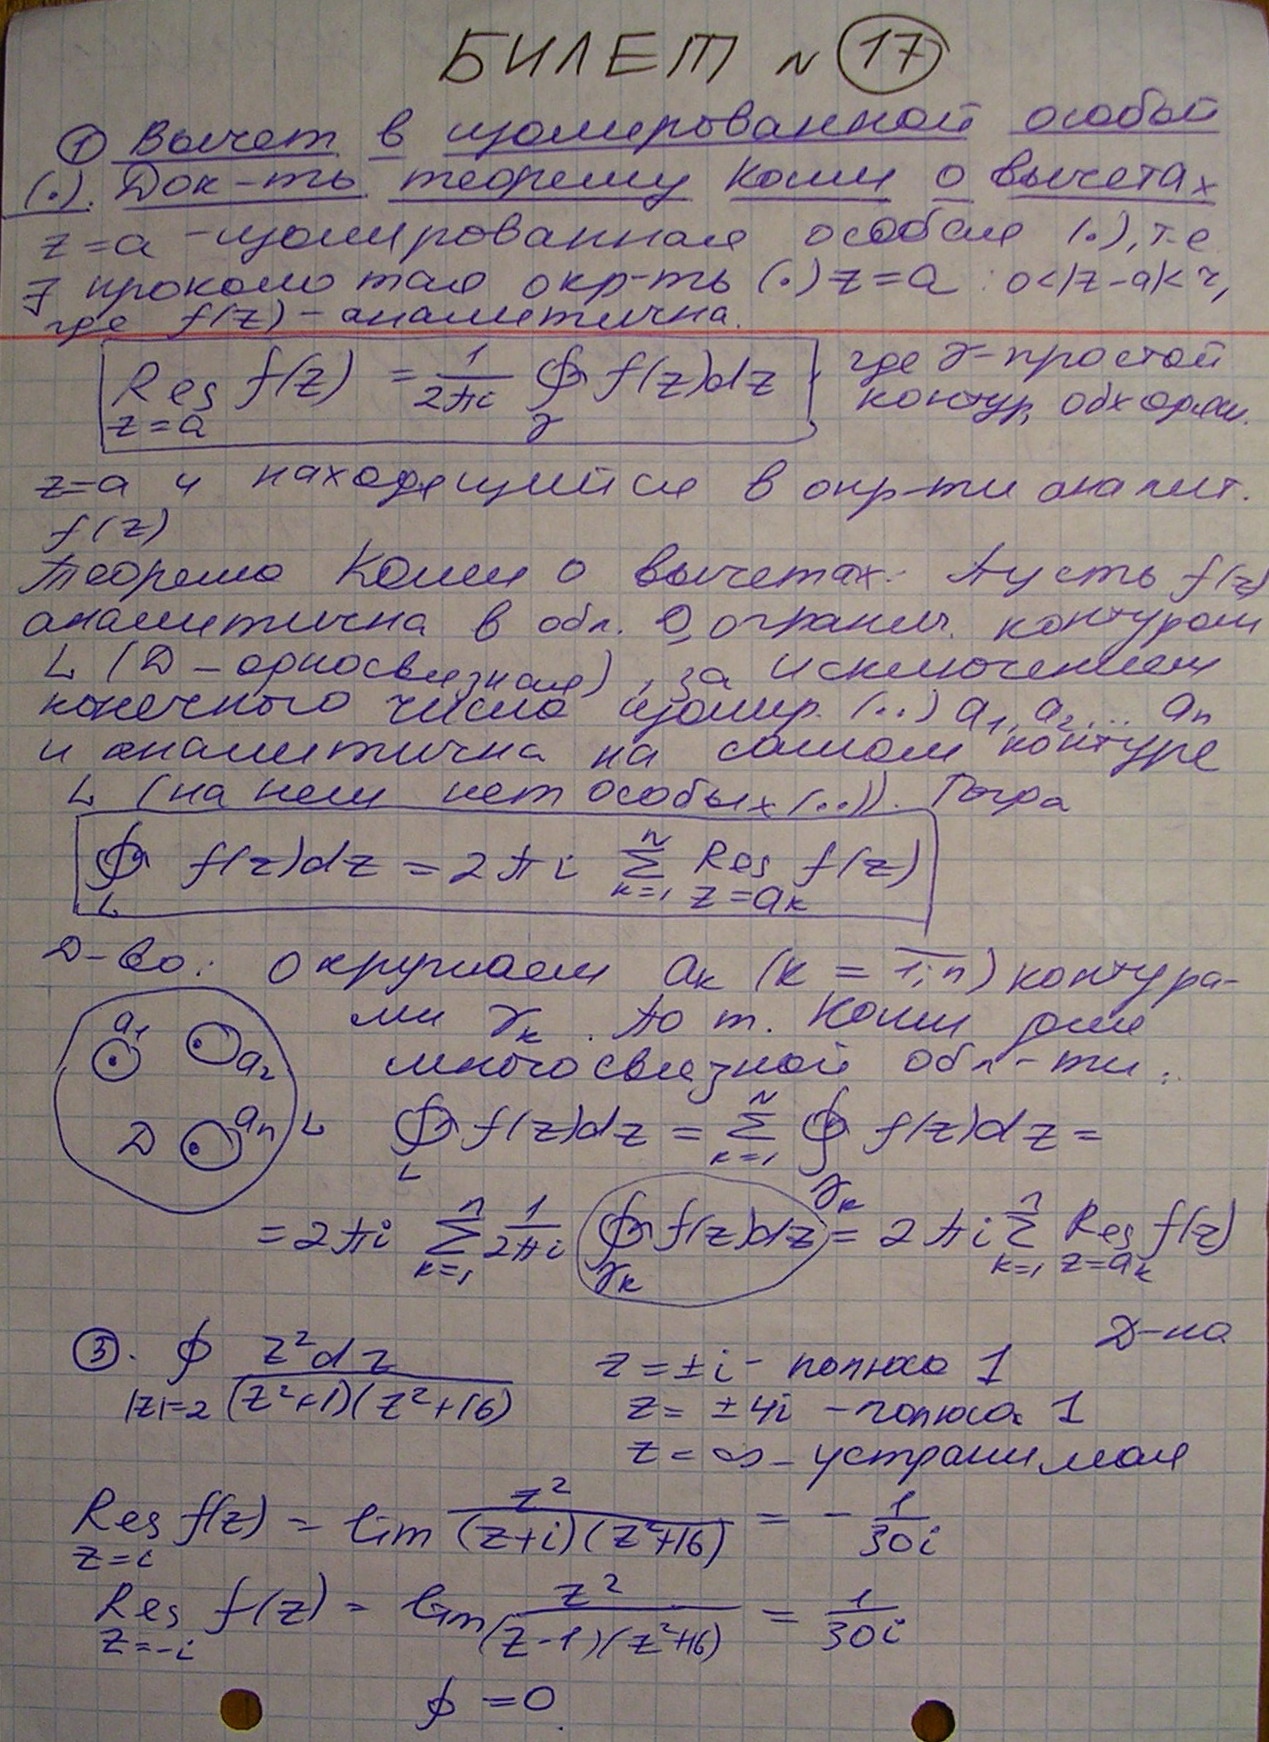 БИЛЕТ N 17
① Вычет в изолированной особой
(.). Док-ть теорему Коши о вычетах
z=a - изолированная особая (.), т.е
∃ проколотая окр-ть (.) z=a : 0<|z-a|<r,
где f(z) - аналитична.
Res f(z) = 1/2πi ∮ f(z)dz где γ-простой
z=a γ контур, обходящ.
z=a и находящийся в окр-ти аналит.
f(z)
Теорема Коши о вычетах. Пусть f(z)
аналитична в обл. D, огранич. контуром
L (D - односвязная), за исключением
конечного числа изолир. (..) a₁, a₂ ... aₙ
и аналитична на самом контуре
L (на нем нет особых (..)). Тогда
∮ f(z)dz = 2πi Σ Res f(z)
L k=1 n z=aₖ
Д-во: Окружаем aₖ (k = 1;n) контура-
ми γₖ. По т. Коши для
многосвязной обл-ти:
a₁ a₂ aₙ D L
∮ f(z)dz = Σ ∮ f(z)dz =
L k=1 n γₖ
= 2πi Σ 1/2πi ∮ f(z)dz = 2πi Σ Res f(z)
k=1 n γₖ k=1 n z=aₖ
Д-но
③. ∮ z²dz/(z²+1)(z²+16) z=±i - полюса 1
|z|=2 z= ±4i - полюса 1
z=∞ - устранимая
Res f(z) = lim z²/(z+i)(z²+16) = - 1/30i
z=i
Res f(z) = lim z²/(z-1)(z²+16) = 1/30i
z=-i
∮ =0.